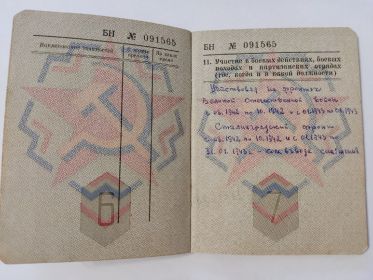 БН № 091565
Наименование
БН № 091565
11. Участие в боевых действиях, боевых
походах и партизанских отрядах
(где, когда и в какой должности)
Участвовал на фронтах
Великой Отечественной войны
с 06.1942 по 10.1942 и с 01.1943 по
Сталинградский фронт
06.1942 по 10.1942 и с 01.1943 по
31.01.1943г. - ком. взвода
6
7